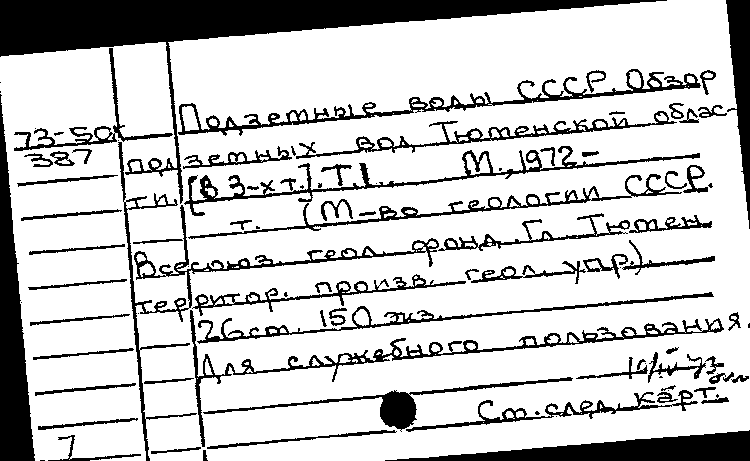 73-50к Подземные воды СССР. Обзор
387 подземных вод Тюменской облас-
ти. [В 3-х т.]. Т.1. М., 1972.-
т. (М-во геологии СССР.
Всесоюз. геол. фонд. Гл. Тюмен.
территор. произв. геол. упр.).
26см. 150 экз.
Для служебного пользования.
См. след. карт.
7